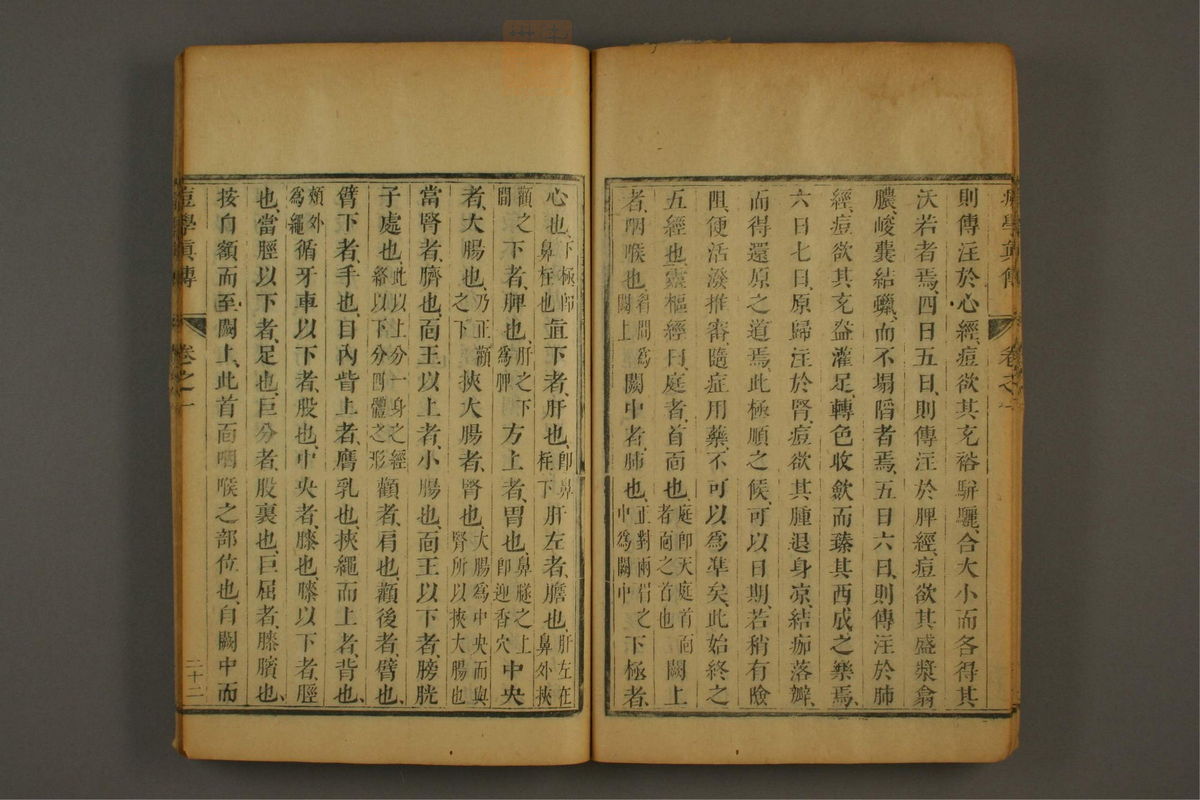 痘學眞傳 卷之一
則傳注於心經痘欲其充裕駢驪合大小而各得其
沃若者焉四日五日則傳注於脾經痘欲其盛漿翕
膿峻龔結蠟而不塌陷者焉五日六日則傳注於肺
經痘欲其充盈灌足轉色收歛而臻其西成之樂焉
六日七日原歸注於腎痘欲其腫退身凉結痂落瓣
而得還原之道焉此極順之候可以日期若稍有險
阻便活潑推審隨症用藥不可以爲凖矣此始終之
五經也靈樞經曰庭者首面也庭卽天庭首面者面之首也闕上
者咽喉也眉間爲闕上闕中者肺也正對兩眉之中爲闕中下極者
心也下極卽鼻柱也直下者肝也卽鼻柱下肝左者膽也肝左在鼻外挾
顴之間下者脾也肝之下爲脾方上者胃也鼻隧之上卽迎香穴中央
者大腸也乃正顴之下挾大腸者腎也大腸爲中央而與腎所以挾大腸也
當腎者臍也面王以上者小腸也面王以下者膀胱
子處也此以上分一身之經絡以下分四體之形顴者肩也顴後者臂也
臂下者手也目內眥上者膺乳也挾繩而上者背也
頰外爲繩循牙車以下者股也中央者膝也膝以下者脛
也當脛以下者足也巨分者股裏也巨屈者膝臏也
按自額而至闕上此首面咽喉之部位也自闕中而
痘學眞傳 卷之一 二十二